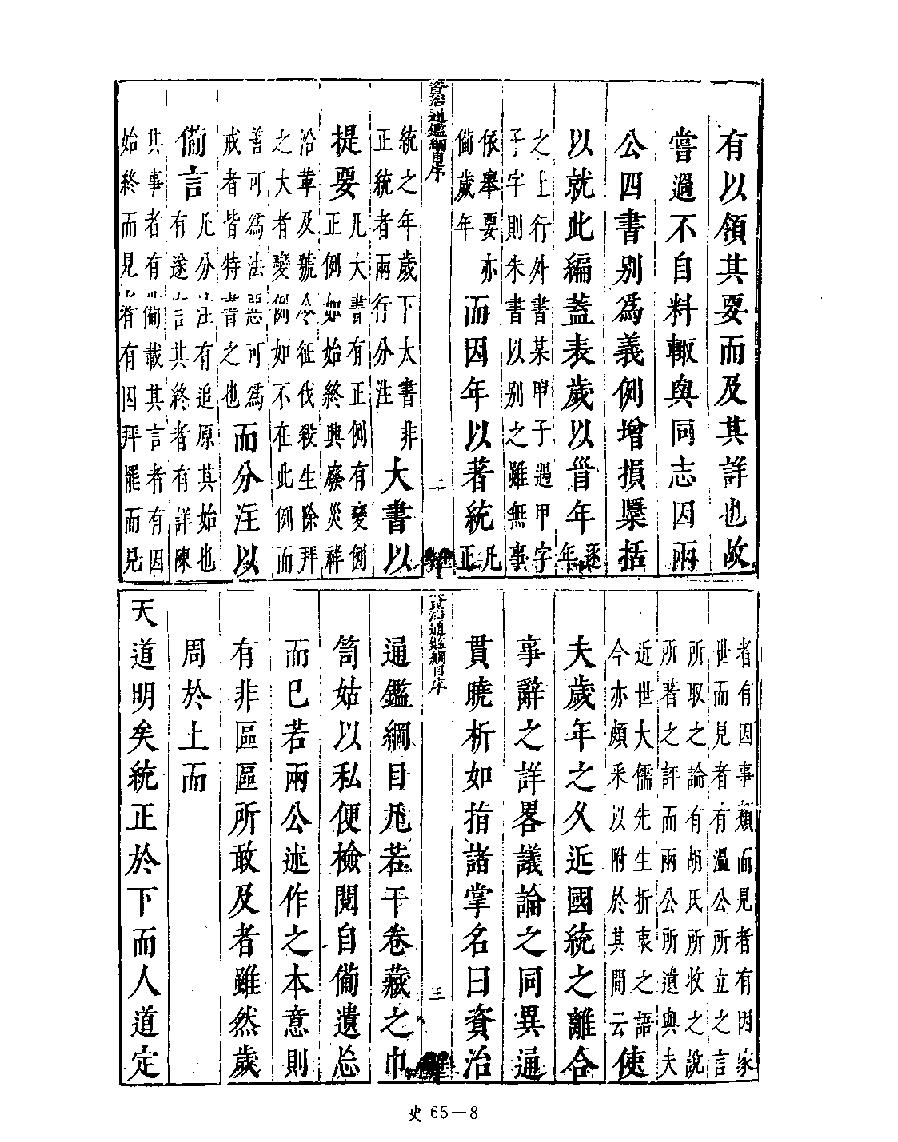 有以領其要而及其詳也故
嘗過不自料輙與同志因兩
公四書别爲義例增損櫽括
以就此編蓋表歲以首年逐年
之上行外書某甲子遇甲字
子字則朱書以别之雖無事
依舉要亦備歲年而因年以著統凡正
資治通鑑綱目序 二
統之年歲下大書非正統者兩行分注大書以
提要凡大書有正例有變例正例如始終興廢災祥
沿革及號令征伐殺生除拜
之大者變例如不在此例而
善可爲法惡可爲戒者皆特書之也而分注以
備言凡分注有追原其始也有遂言其終者有詳陳
其事者有備載其言者有因
始終而見者有因拜罷而見
者有因事類而見者有因家
世而見者有溫公所立之言
所取之論有胡氏所收之說
所著之評而兩公所遺與夫
近世大儒先生折衷之語今亦頗采以附於其間云使
夫歲年之久近國統之離合
事辭之詳畧議論之同異通
貫曉析如指諸掌名曰資治
資治通鑑綱目序 三
通鑑綱目凡若干卷藏之巾
笥姑以私便檢閱自備遺忘
而已若兩公述作之本意則
有非區區所敢及者雖然歲
周於上而
天道明矣統正於下而人道定
史 65—8